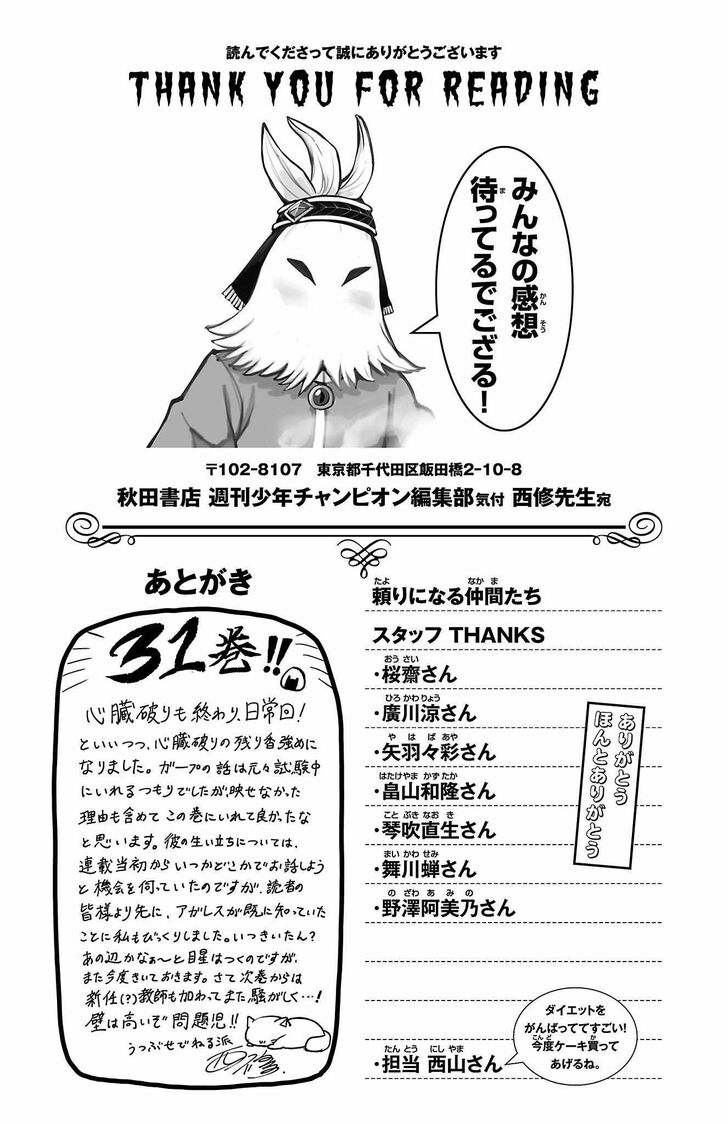 読んでくださって誠にありがとうございます
THANK YOU FOR READING
みんなの感想
待ってるでござる!
〒102-8107 東京都千代田区飯田橋2-10-8
秋田書店 週刊少年チャンピオン編集部気付 西修先生宛
あとがき
31巻!!
心臓破りも終わり、日常回!
といいつつ、心臓破りの残り香強めに
なりました。ガープの話は元々試験中
にいれるつもりでしたが、映せなかった
理由も含めてこの巻にいれて良かったな
と思います。彼の生い立ちについては、
連載当初からいつかどこかでお話しよう
と機会を伺っていたのですが、読者の
皆様より先に、アガレスが既に知っていた
ことに私もびっくりしました。いつきいたん?
あの辺かなぁ〜と目星はつくのですが、
また今度きいておきます。さて次巻からは
新任(?)教師も加わってまた騒がしく…!
壁は高いぞ問題児!!
うつぶせでねる派
西修
頼りになる仲間たち
スタッフ THANKS
・桜齋さん
・廣川涼さん
・矢羽々彩さん
・畠山和隆さん
・琴吹直生さん
・舞川蝉さん
・野澤阿美乃さん
ありがとう
ほんとありがとう
・担当 西山さん
ダイエットを
がんばっててすごい!
今度ケーキ買って
あげるね。